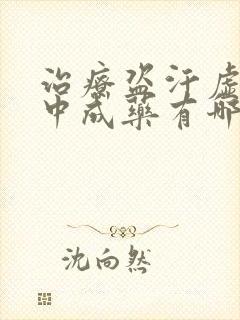 治療盗汗虛
中成藥有哪
沈向然